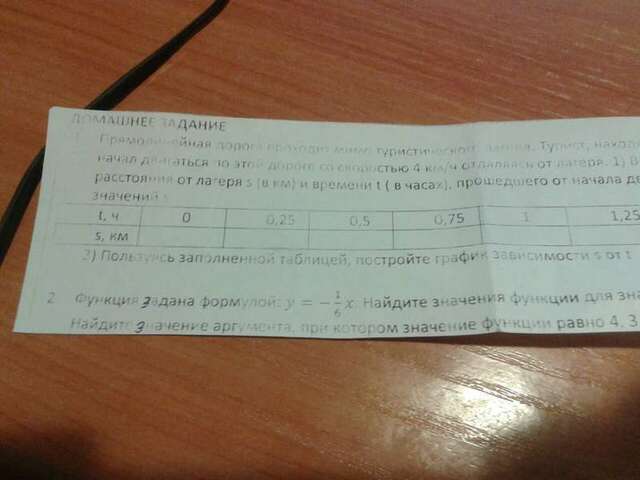 ДОМАШНЕЕ ЗАДАНИЕ
1 Прямолинейная дорога проходит мимо туристического лагеря. Турист, наход
начал двигаться по этой дороге со скоростью 4 км/ч отдаляясь от лагеря. 1) В
расстояния от лагеря s (в км) и времени t ( в часах), прошедшего от начала д
значений
t, ч 0 0,25 0,5 0,75 1 1,25
s, км
2) Пользуясь заполненной таблицей, постройте график зависимости s от t
2 Функция задана формулой: y = −1/6 x. Найдите значения функции для зна
Найдите значение аргумента, при котором значение функции равно 4. 3